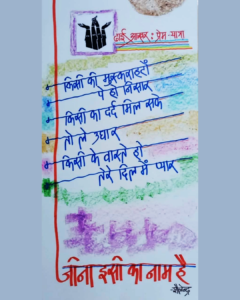 ढाई आखर : प्रेम-यात्रा
किसी की मुस्कुराहटों
पे हो निसार
किसी का दर्द मिल सके
तो ले उधार
किसी के वास्ते हो
तेरे दिल में प्यार
जीना इसी का नाम है